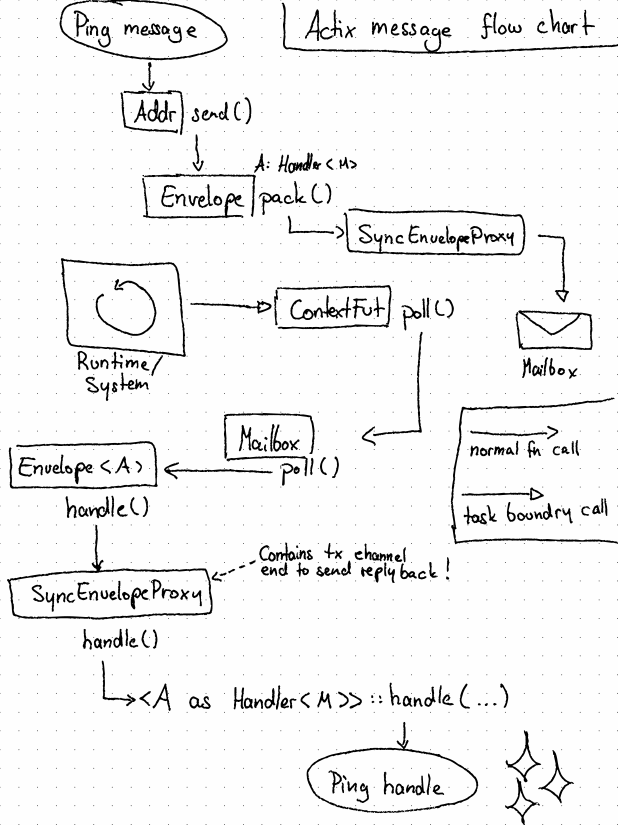 Ping message
Actix message flow chart
Addr send()
A: Handler<M>
Envelope pack()
SyncEnvelopeProxy
ContextFut poll()
Runtime/
System
Mailbox
Mailbox
poll()
Envelope <A>
handle()
normal fn call
task boundry call
Contains tx channel
end to send reply back!
SyncEnvelopeProxy
handle()
<A as Handler<M>>::handle(...)
Ping handle